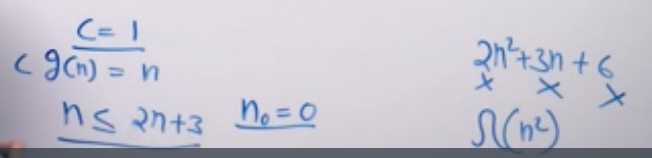 C = 1
c g(n) = n
n ≤ 2n+3 n₀ = 0
2n²+3n+6
x x x
Ω(n²)